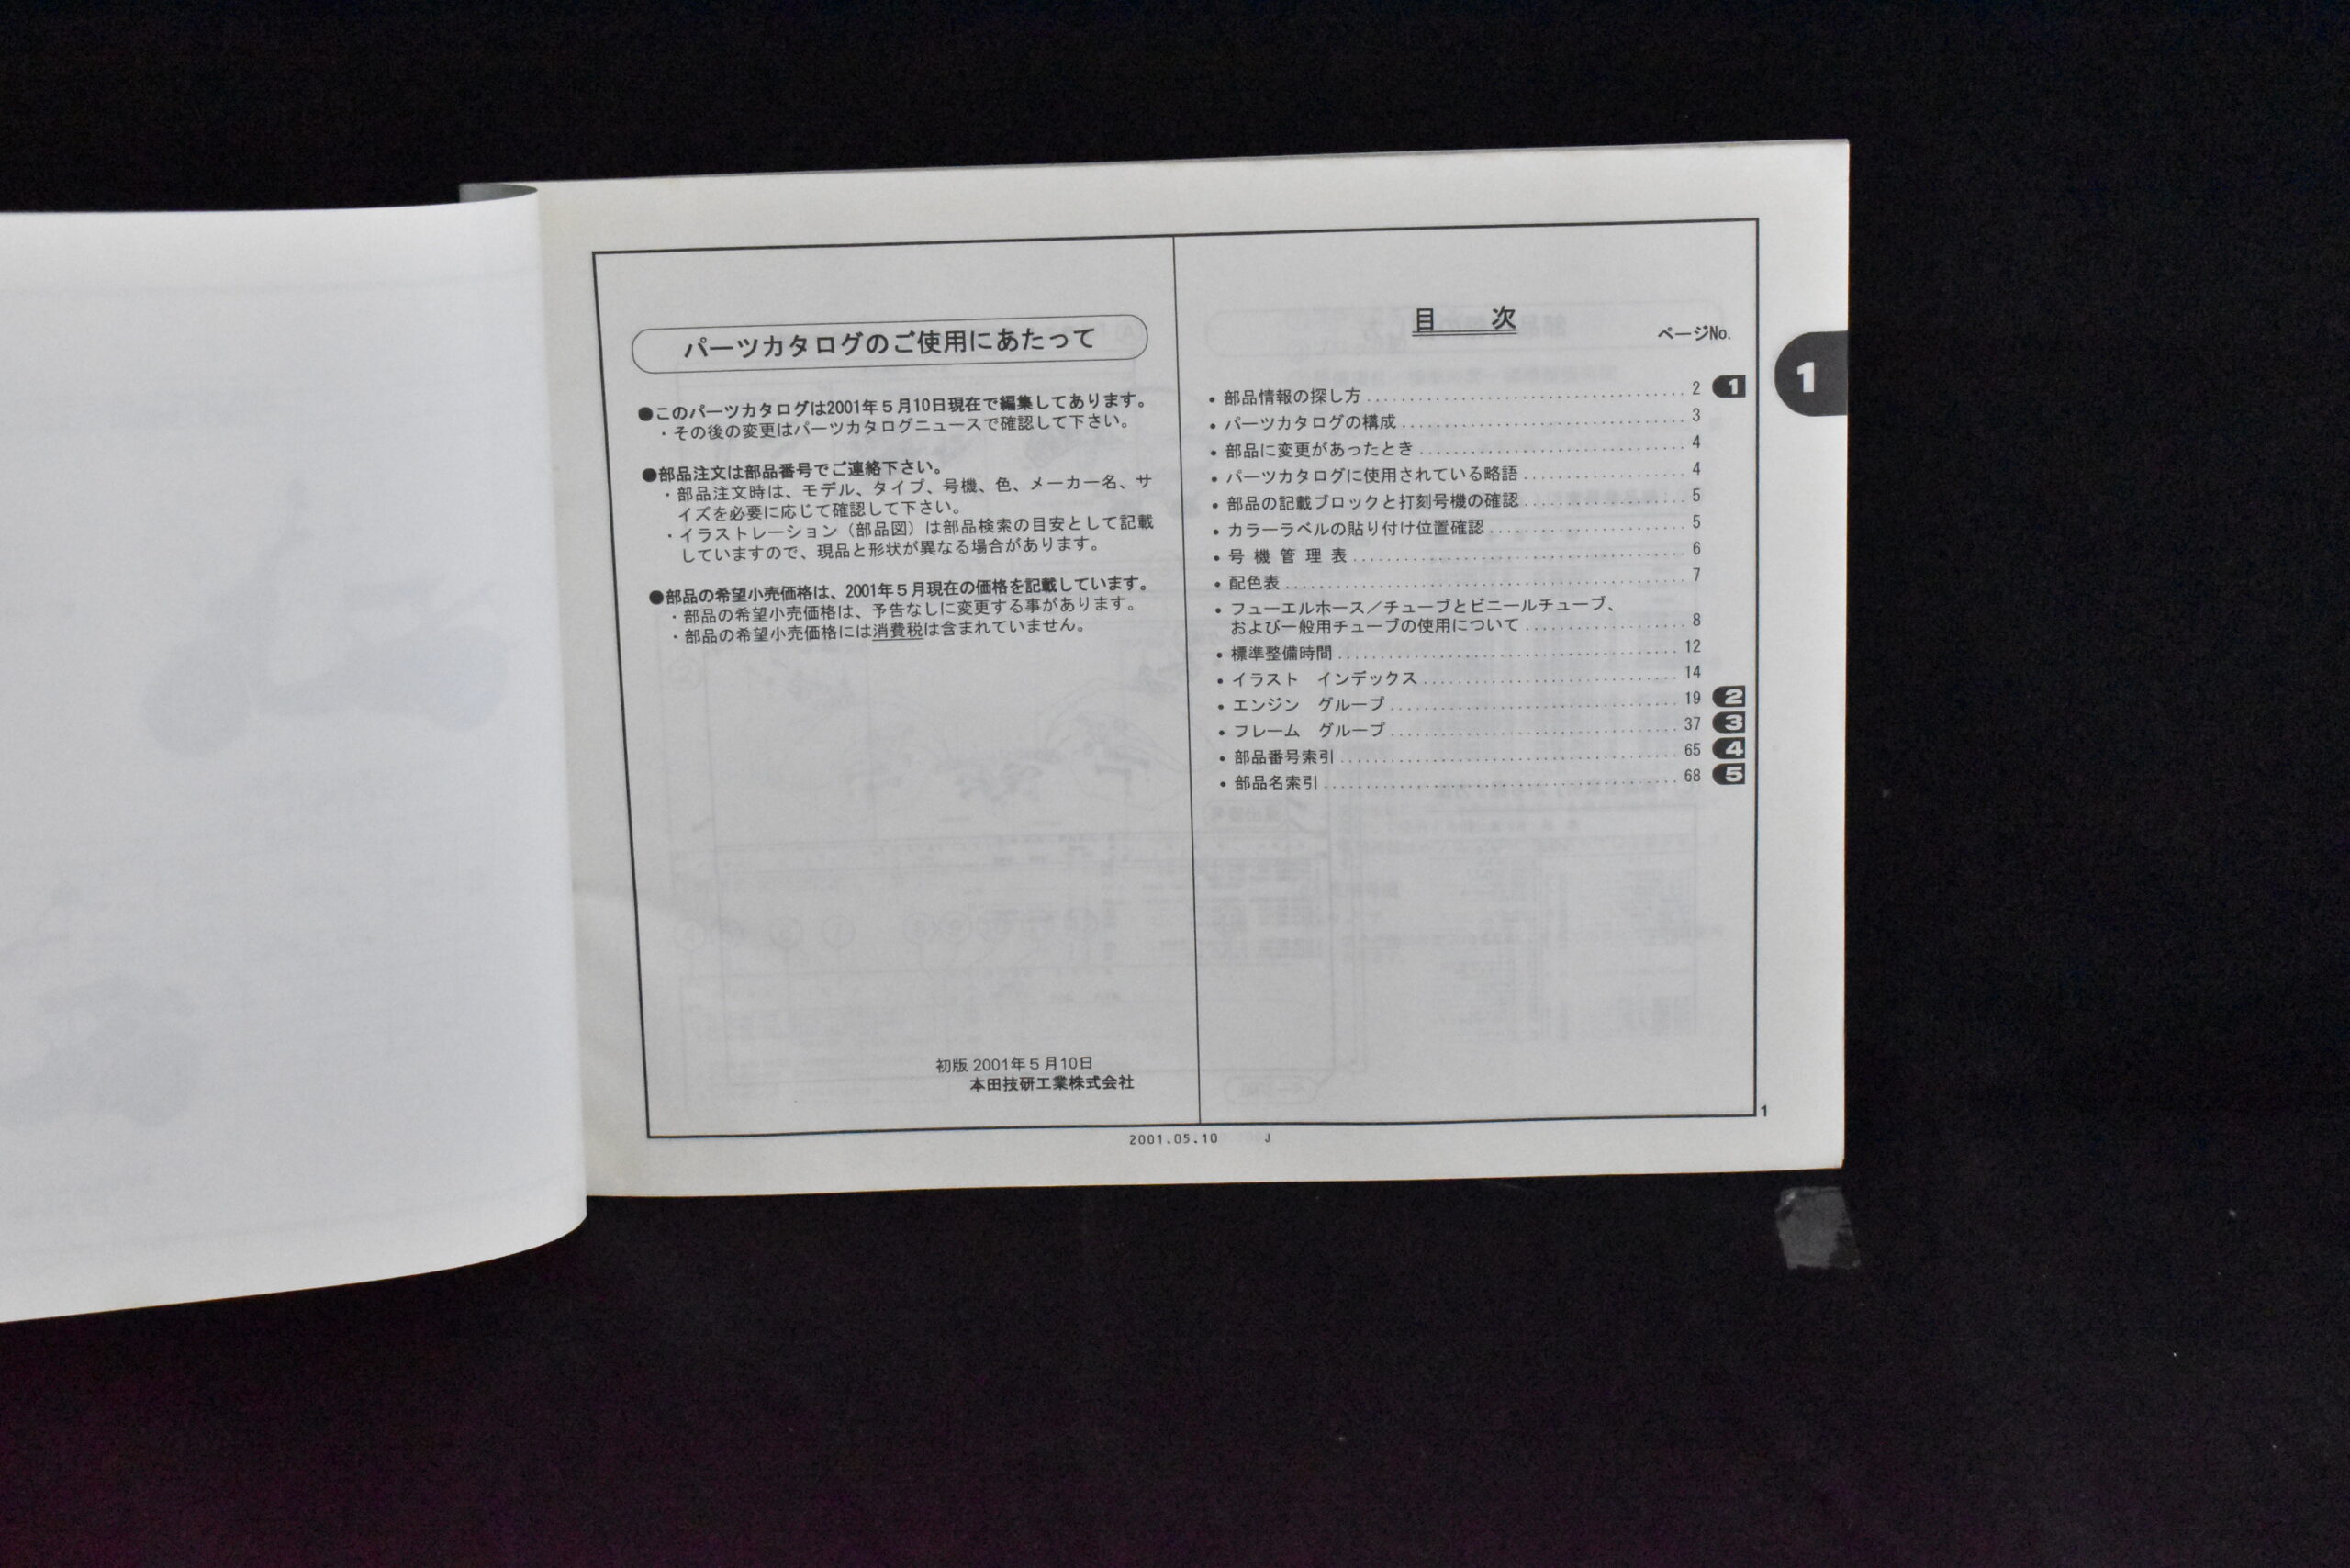 パーツカタログのご使用にあたって
●このパーツカタログは2001年5月10日現在で編集してあります。
・その後の変更はパーツカタログニュースで確認して下さい。
●部品注文は部品番号でご連絡下さい。
・部品注文時は、モデル、タイプ、号機、色、メーカー名、サ
イズを必要に応じて確認して下さい。
・イラストレーション（部品図）は部品検索の目安として記載
していますので、現品と形状が異なる場合があります。
●部品の希望小売価格は、2001年5月現在の価格を記載しています。
・部品の希望小売価格は、予告なしに変更する事があります。
・部品の希望小売価格には消費税は含まれていません。
初版 2001年5月10日
本田技研工業株式会社
目　次
ページNo.
・部品情報の探し方 2 1
・パーツカタログの構成 3
・部品に変更があったとき 4
・パーツカタログに使用されている略語 4
・部品の記載ブロックと打刻号機の確認 5
・カラーラベルの貼り付け位置確認 5
・号 機 管 理 表 6
・配色表 7
・フューエルホース／チューブとビニールチューブ、
および一般用チューブの使用について 8
・標準整備時間 12
・イラスト　インデックス 14
・エンジン　グループ 19 2
・フレーム　グループ 37 3
・部品番号索引 65 4
・部品名索引 68 5
1
2001.05.10 J
1